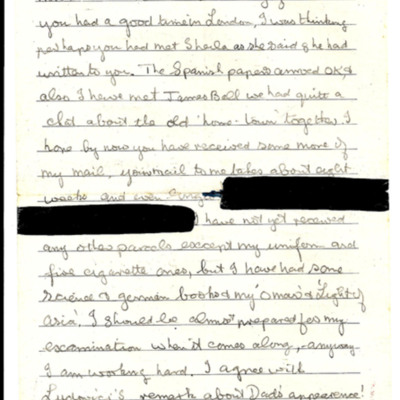 you had a good time in London, I was thinking
perhaps you had met Sheila as she said she had
written to you. The Spanish papers arrived OK &
also I have met James Bell we had quite a
chat about the old 'home-town' together. I
hope by now you have received some more of
my mail, your mail to me takes about eight
weeks and even
I have not yet received
any other parcels except my uniform and
five cigarette ones, but I have had some
science & german books & my 'Omar' & 'Light of
Asia'. I should be almost prepared for my
examination when it comes along, anyway
I am working hard. I agree with
Ludovici's remark about Dad's appearence!